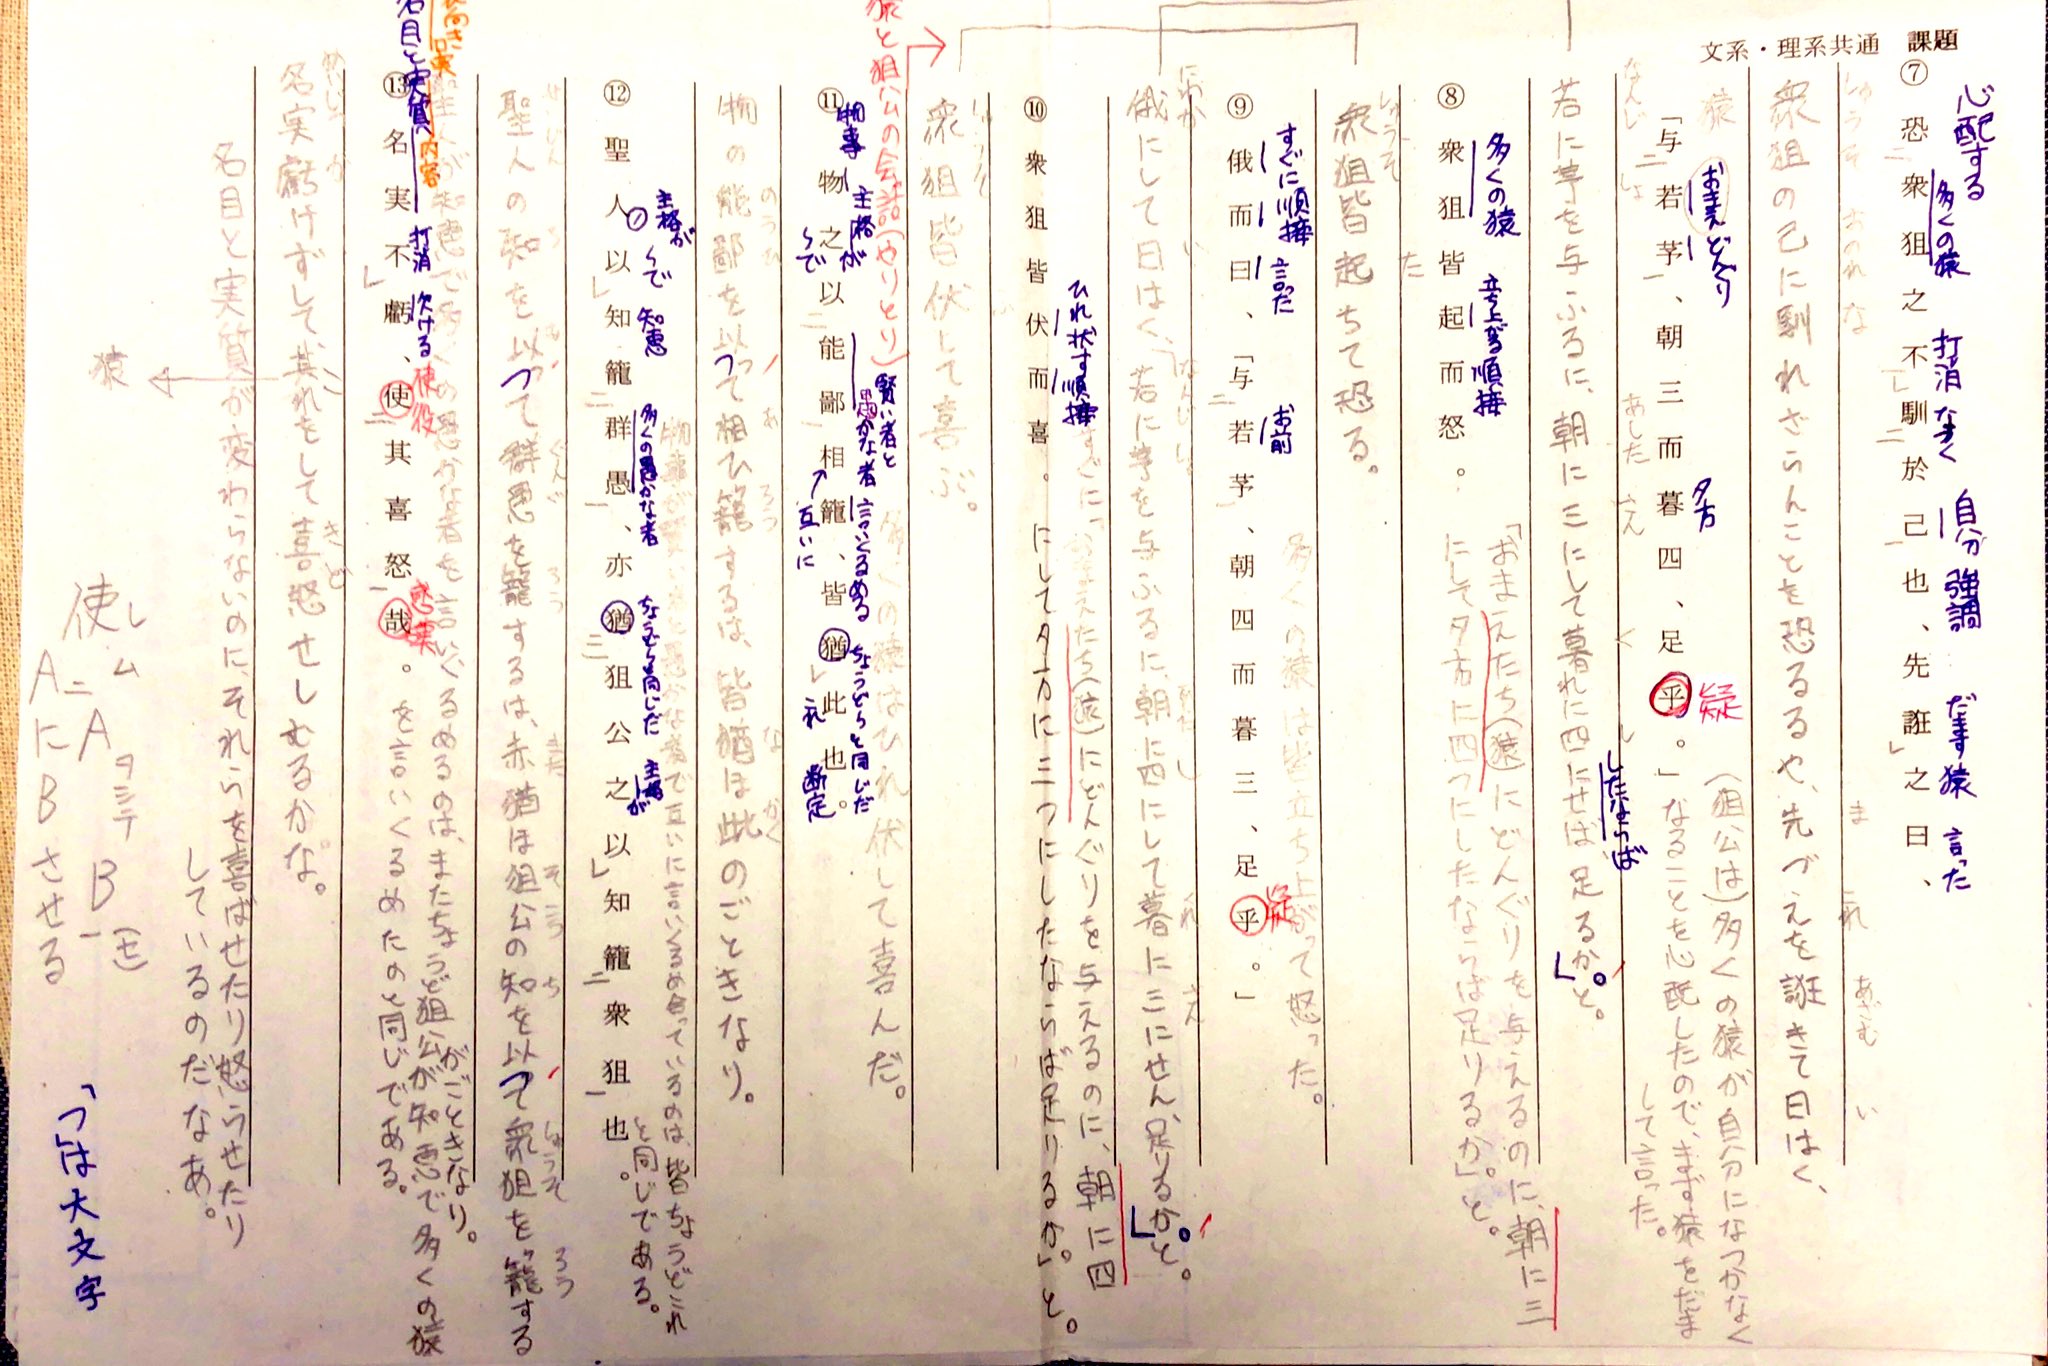 文系・理系共通　課題
心配する　多くの猿　打消　なつく　自分　強調　だます　猿　言った
⑦恐衆狙之不馴於己也、先誑之曰、
衆狙の己に馴れざらんことを恐るるや、先づ之を誑きて曰はく、
(狙公は)多くの猿が自分になつかなく
なることを心配したので、まず猿をだま
して言った。
猿　おまえ　どんぐり　夕方　疑
「与若芧、朝三而暮四、足乎。」
若に芧を与ふるに、朝に三にして暮れに四にせば足るか。」と。
したならば
「おまえたち(猿)にどんぐりを与えるのに、朝に三
にして夕方に四つにしたならば足りるか」。と。
多くの猿　立ち上がる　順接
⑧衆狙皆起而怒。
衆狙皆起ちて恐る。
多くの猿は皆立ち上がって怒った。
すぐに　順接　言った　お前　疑
⑨俄而曰、「与若芧、朝四而暮三、足乎。」
俄にして曰はく、「若に芧を与ふるに、朝に四にして暮に三にせん、足りるか。」と。
すぐに、「おまえたち(猿)にどんぐりを与えるのに、朝に四
にして夕方に三つにしたならば足りるか。」と。
ひれ伏す　順接
⑩衆狙皆伏而喜。
衆狙皆伏して喜ぶ。
多くの猿はひれ伏して喜んだ。
猿と狙公の会話(やりとり)
物事　主格が　〜で　賢い者と愚かな者　言いくるめる　互いに　ちょうど〜と同じだ　これ　断定
⑪物之以能鄙相籠、皆猶此也。
物の能鄙を以って相ひ籠するは、皆猶ほ此のごときなり。
物事が賢い者と愚かな者で互いに言いくるめ合っているのは、皆ちょうどこれ
と同じである。
主格が　〜で　知恵　多くの愚かな者　ちょうど〜と同じだ　主格が
⑫聖人以知籠群愚、亦猶狙公之以知籠衆狙也。
聖人の知を以って群愚を籠するは、亦猶ほ狙公の知を以って衆狙を籠する
がごときなり。
聖人が知恵で多くの愚かな者を言いくるめるのは、またちょうど狙公が知恵で多くの猿
を言いくるめたのと同じである。
名目と実質、内容　打消　欠ける　使役　感実
⑬名実不虧、使其喜怒哉。
名実虧けずして、其れをして喜怒せしむるかな。
猿
名目と実質が変わらないのに、それらを喜ばせたり怒らせたり
しているのだなあ。
使レム A ヲシテ B (セ)
AにBさせる
「つ」は大文字